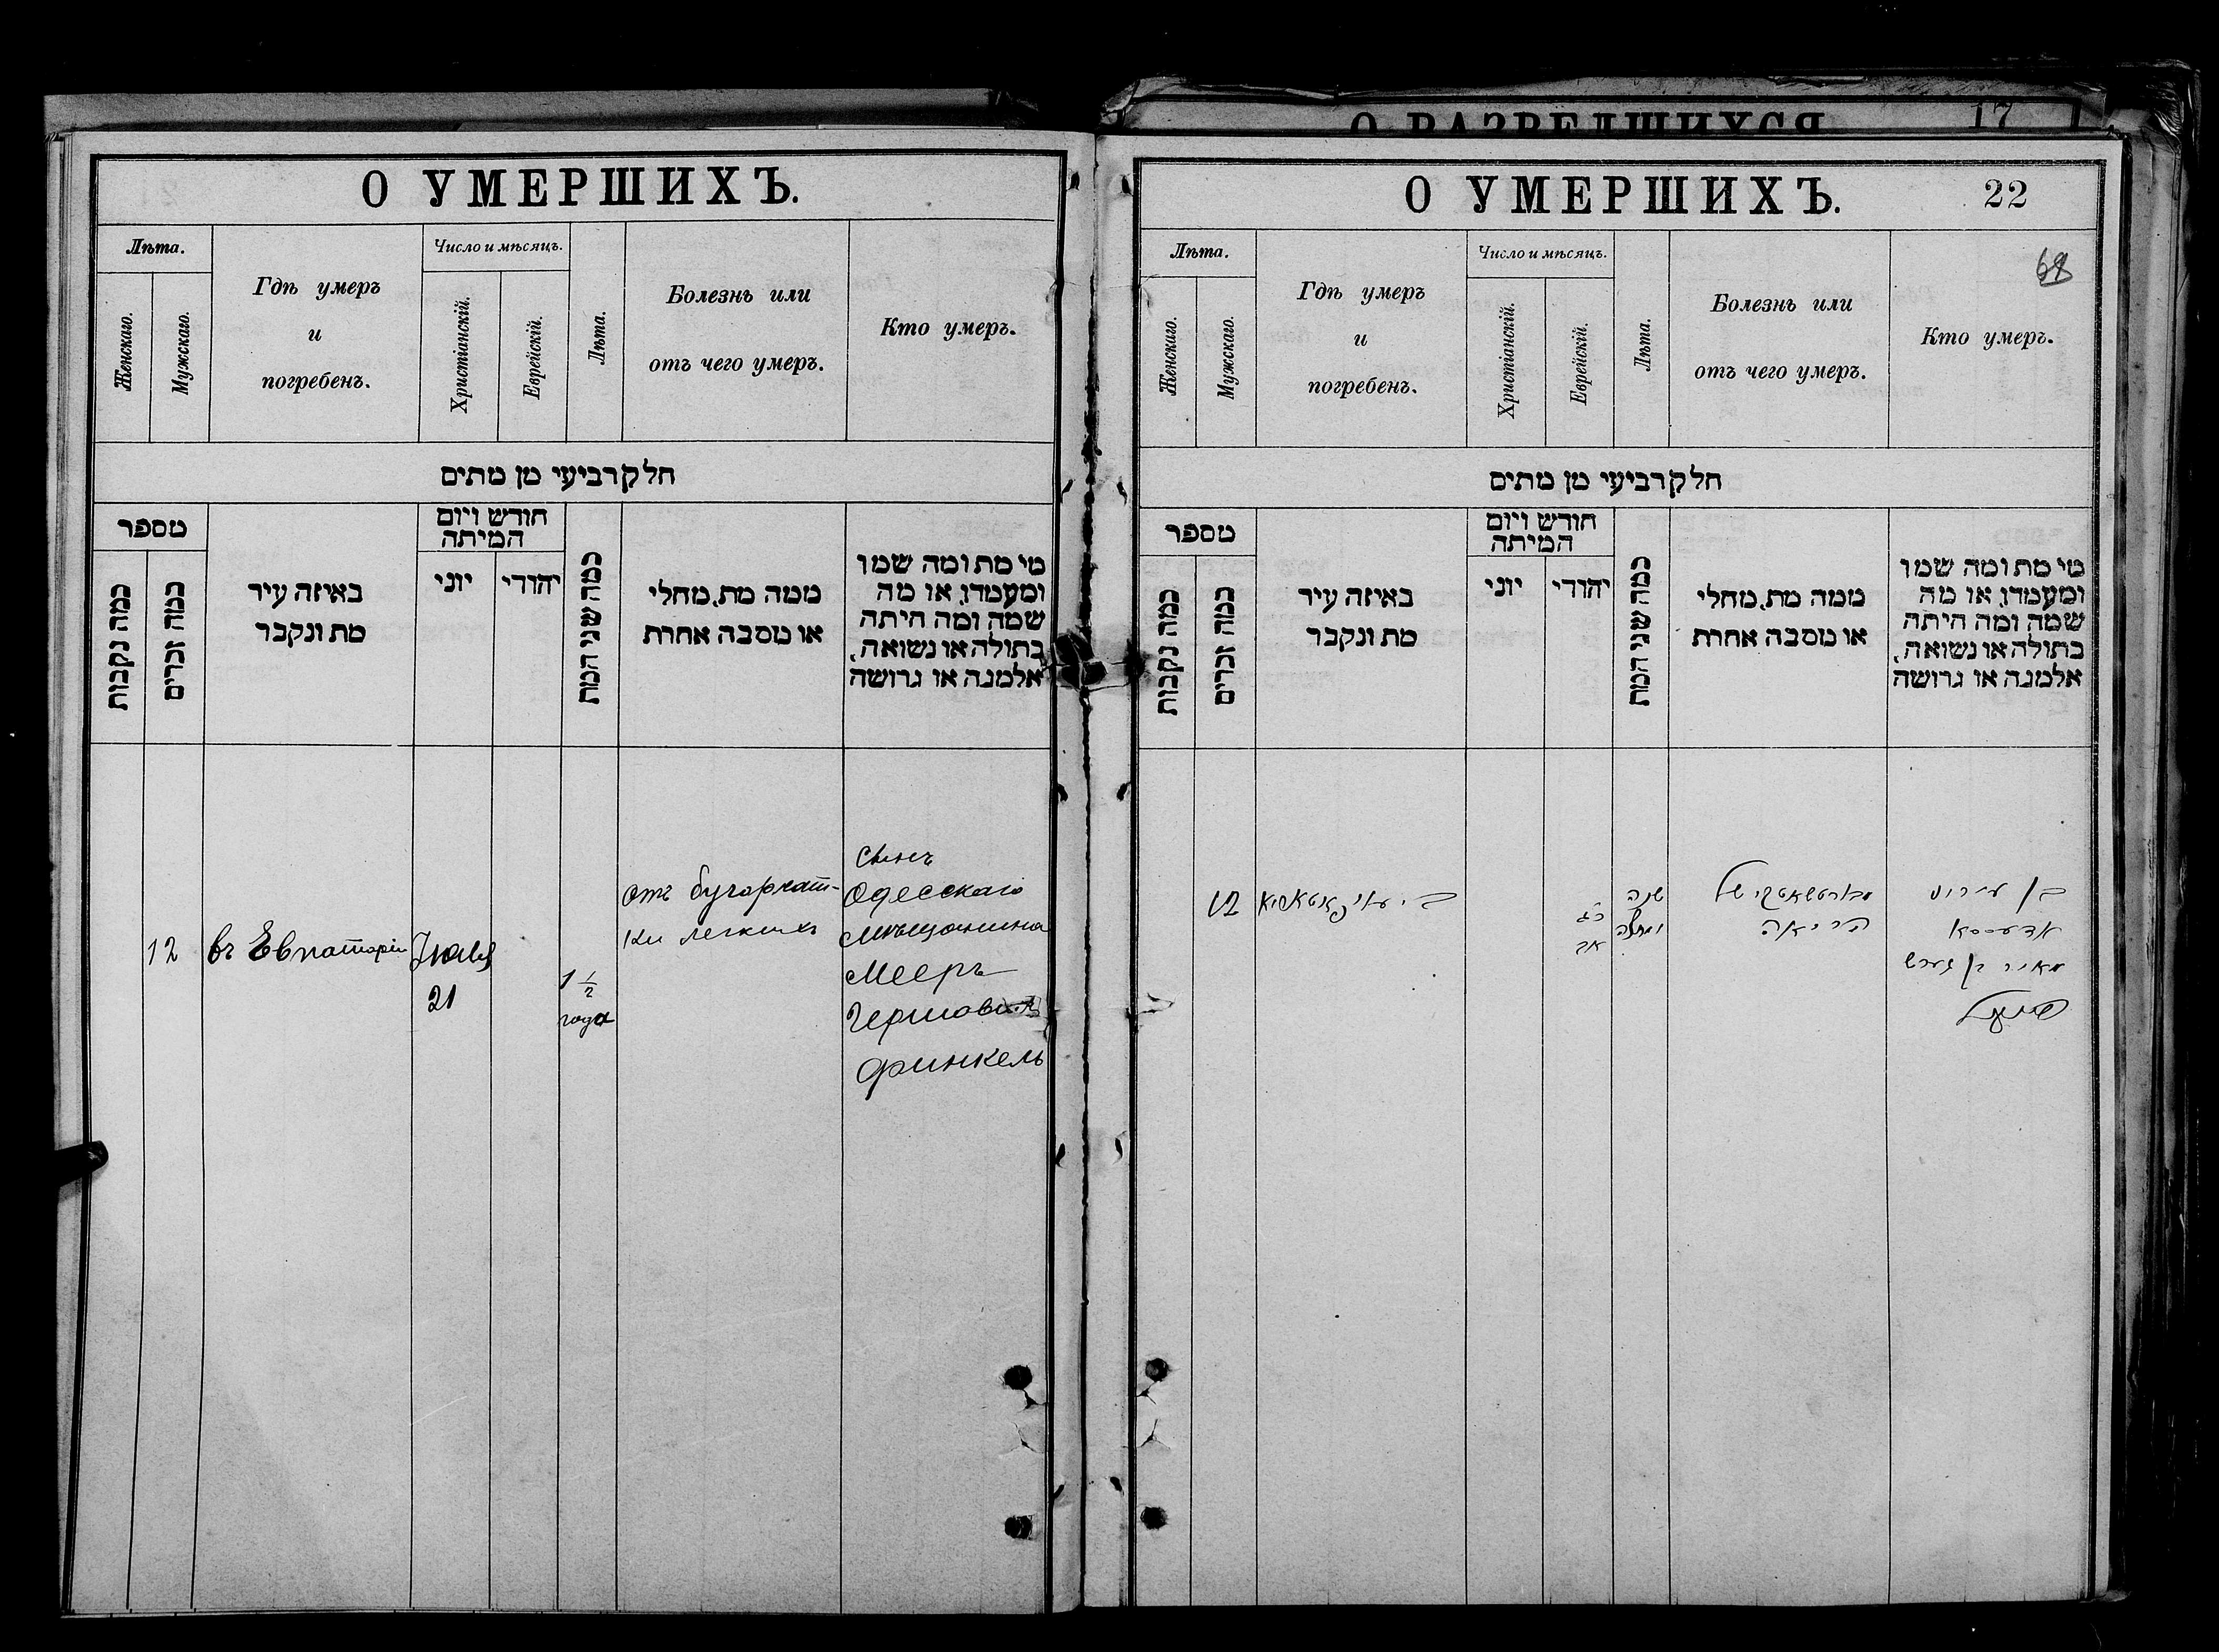 О РАЗВЕДШИХСЯ 17
О УМЕРШИХЪ.
Лѣта.
Женскаго.
Мужскаго.
Гдѣ умеръ
и
погребенъ.
Число и мѣсяцъ.
Христіанскій.
Еврейскій.
Лѣта.
Болезнь или
отъ чего умеръ.
Кто умеръ.
חלק רביעי מן מתים
מספר
כמה נקבות
כמה זכרים
באיזה עיר
מת ונקבר
חודש ויום
המיתה
יוני
יהודי
כמה שני המת
ממה מת, מחלי
או מסבה אחרת
מי מת ומה שמו
ומעמדו, או מה
שמה ומה היתה
בתולה או נשואה,
אלמנה או גרושה
12
въ Евпаторіи
Іюля
21
1 1/2
года
отъ бугорчат-
ки легкихъ
сынъ
Одесскаго
мѣщанина
Мееръ
Финкель
О УМЕРШИХЪ. 22
68
Лѣта.
Женскаго.
Мужскаго.
Гдѣ умеръ
и
погребенъ.
Число и мѣсяцъ.
Христіанскій.
Еврейскій.
Лѣта.
Болезнь или
отъ чего умеръ.
Кто умеръ.
חלק רביעי מן מתים
מספר
כמה נקבות
כמה זכרים
באיזה עיר
מת ונקבר
חודש ויום
המיתה
יוני
יהודי
כמה שני המת
ממה מת, מחלי
או מסבה אחרת
מי מת ומה שמו
ומעמדו, או מה
שמה ומה היתה
בתולה או נשואה,
אלמנה או גרושה
12
אב
שנה
של
הריאה
בן
אדעססא
מאיר בן